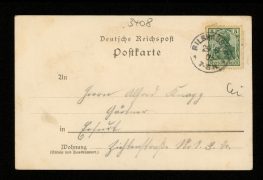 3408
Deutsche Reichspost
Postkarte
An
Herrn Alfred Knapp
Gärtner
in Erfurt
Wohnung
(Straße und Hausnummer)
No 1